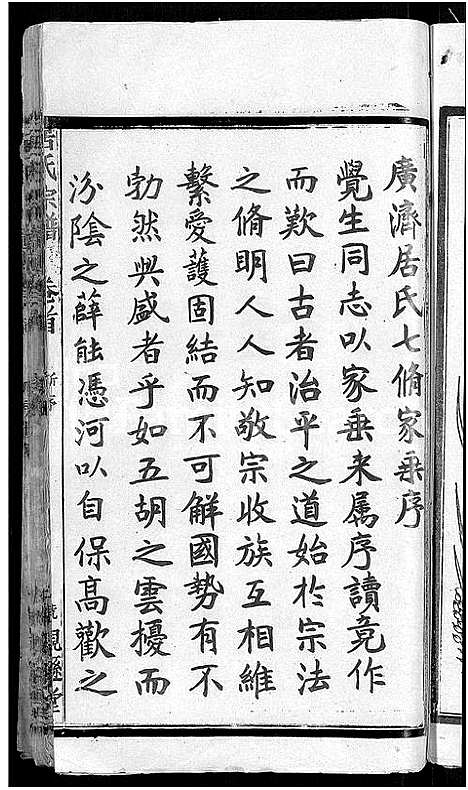 廣濟居氏七脩家乗序
覺生同志以家乗来属序讀竟作
而歎曰古者治平之道始於宗法
之脩明人人知敬宗收族互相維
繫愛護固結而不可解國勢有不
勃然興盛者乎如五胡之雲擾而
汾陰之薛能憑河以自保高歡之
居氏宗譜 卷首 新序